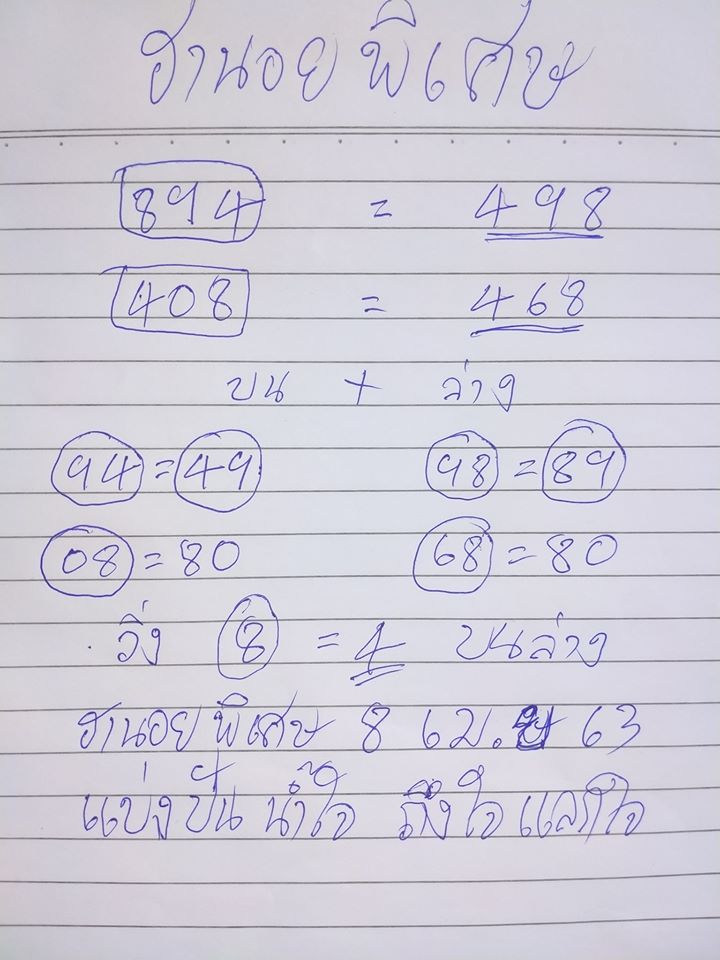 ฮานอยพิเศษ
894 = 498
408 = 468
บน + ล่าง
94 = 49 98 = 89
08 = 80 68 = 80
วิ่ง 8 = 4 บนล่าง
ฮานอยพิเศษ 8 เม.ย 63
แบ่งปัน น้ำใจ ถึงใจ แลกใจ